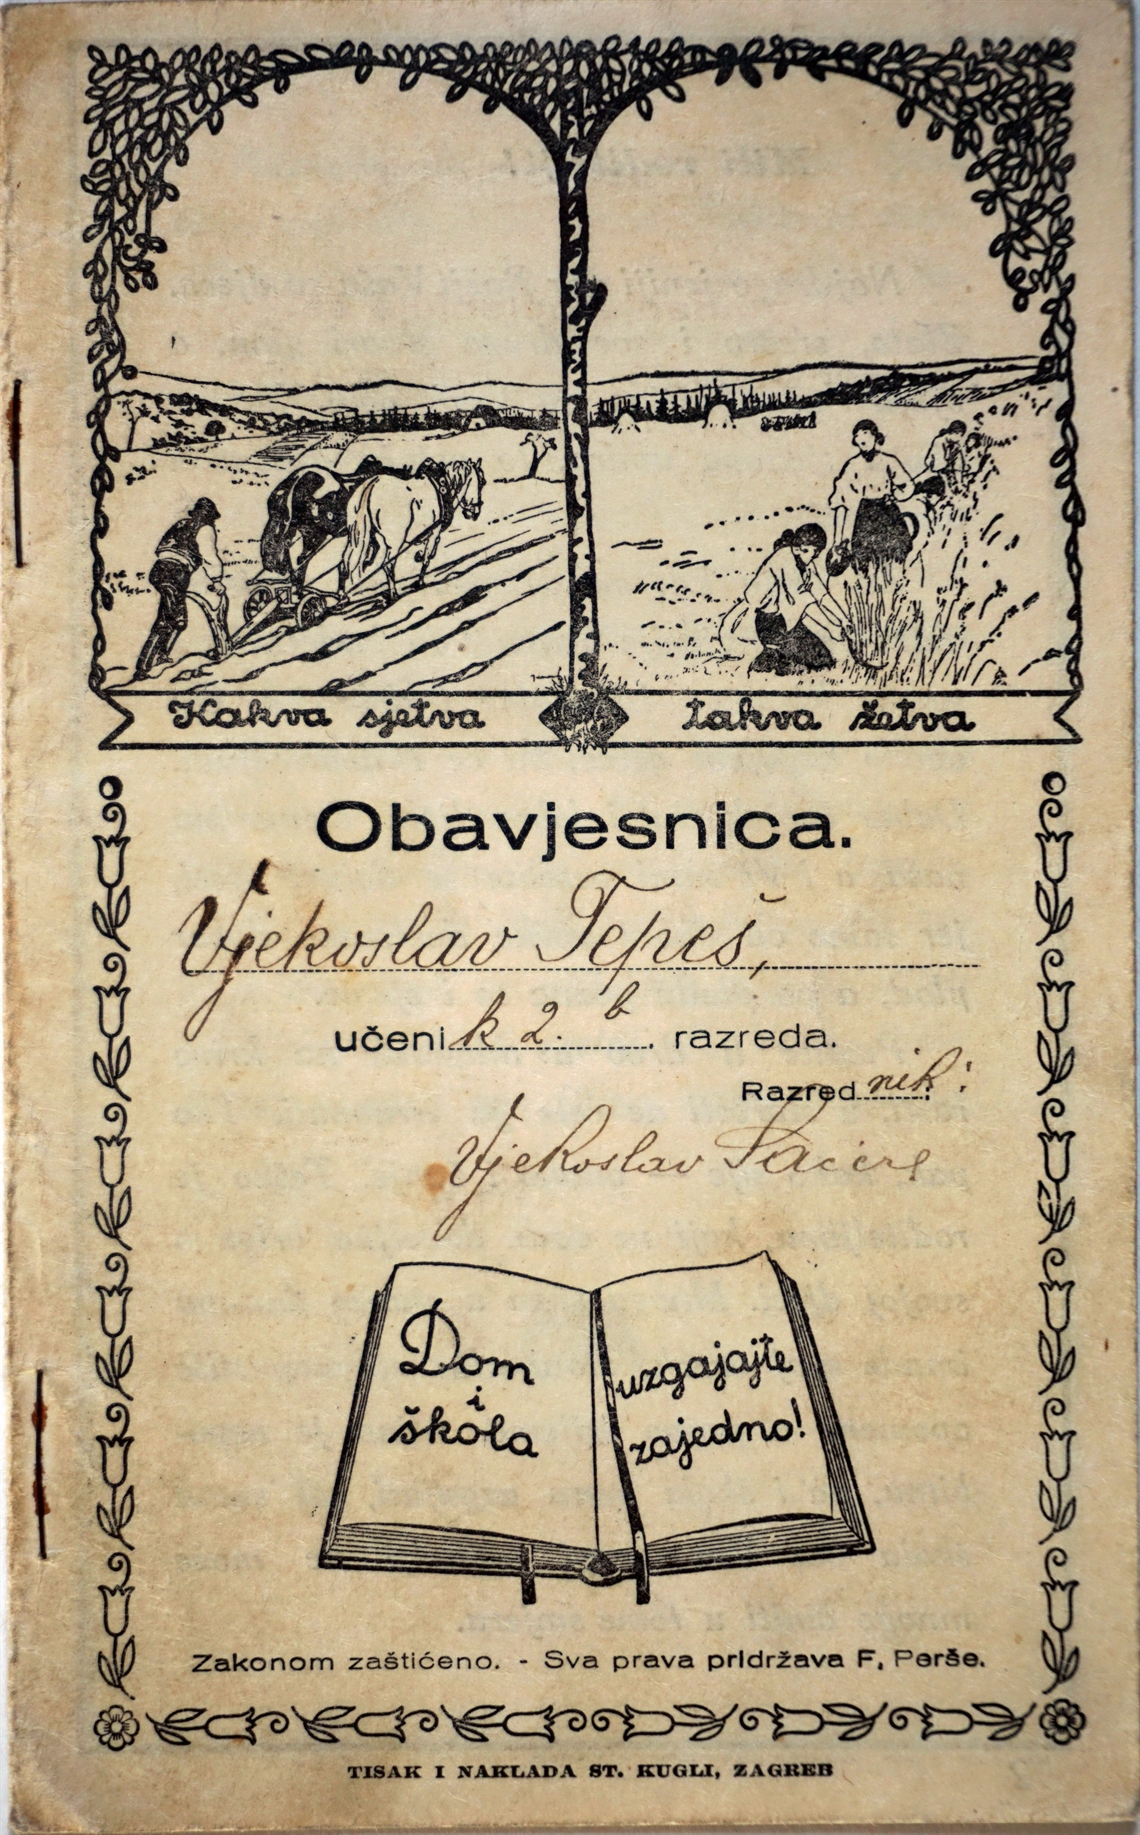 Kakva sjetva takva žetva
Obavjesnica.
Vjekoslav Tepeš,
učenik 2. b . razreda.
Razrednik:
Vjekoslav
Dom
i
škola
uzgajajte
zajedno!
Zakonom zaštićeno. - Sva prava pridržava F. Perše.
TISAK I NAKLADA ST. KUGLI, ZAGREB